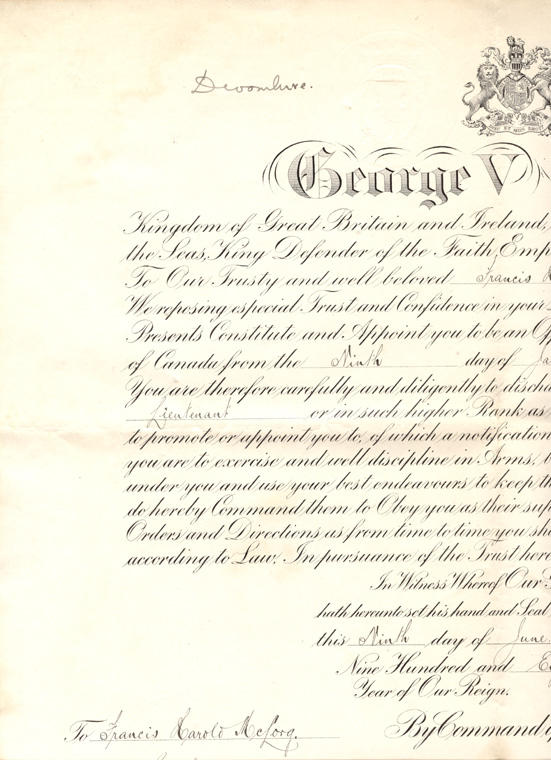 Devonshire.
George V
Kingdom of Great Britain and Ireland,
the Seas, King Defender of the Faith, Emp
To Our Trusty and well beloved Francis
We reposing especial Trust and Confidence in your
Presents Constitute and Appoint you to be an Of
of Canada from the Ninth day of Ja
You are therefore carefully and diligently to discha
Lieutenant or in such higher Rank as
to promote or appoint you to, of which a notification
you are to exercise and well discipline in Arms,
under you and use your best endeavours to keep th
do hereby Command them to Obey you as their sup
Orders and Directions as from time to time you sha
according to Law. In pursuance of the Trust here
In Witness Whereof Our
hath hereunto set his hand and Seal
this Ninth day of June
Nine Hundred and E
Year of Our Reign.
To Francis Harold McLorg.
By Command of